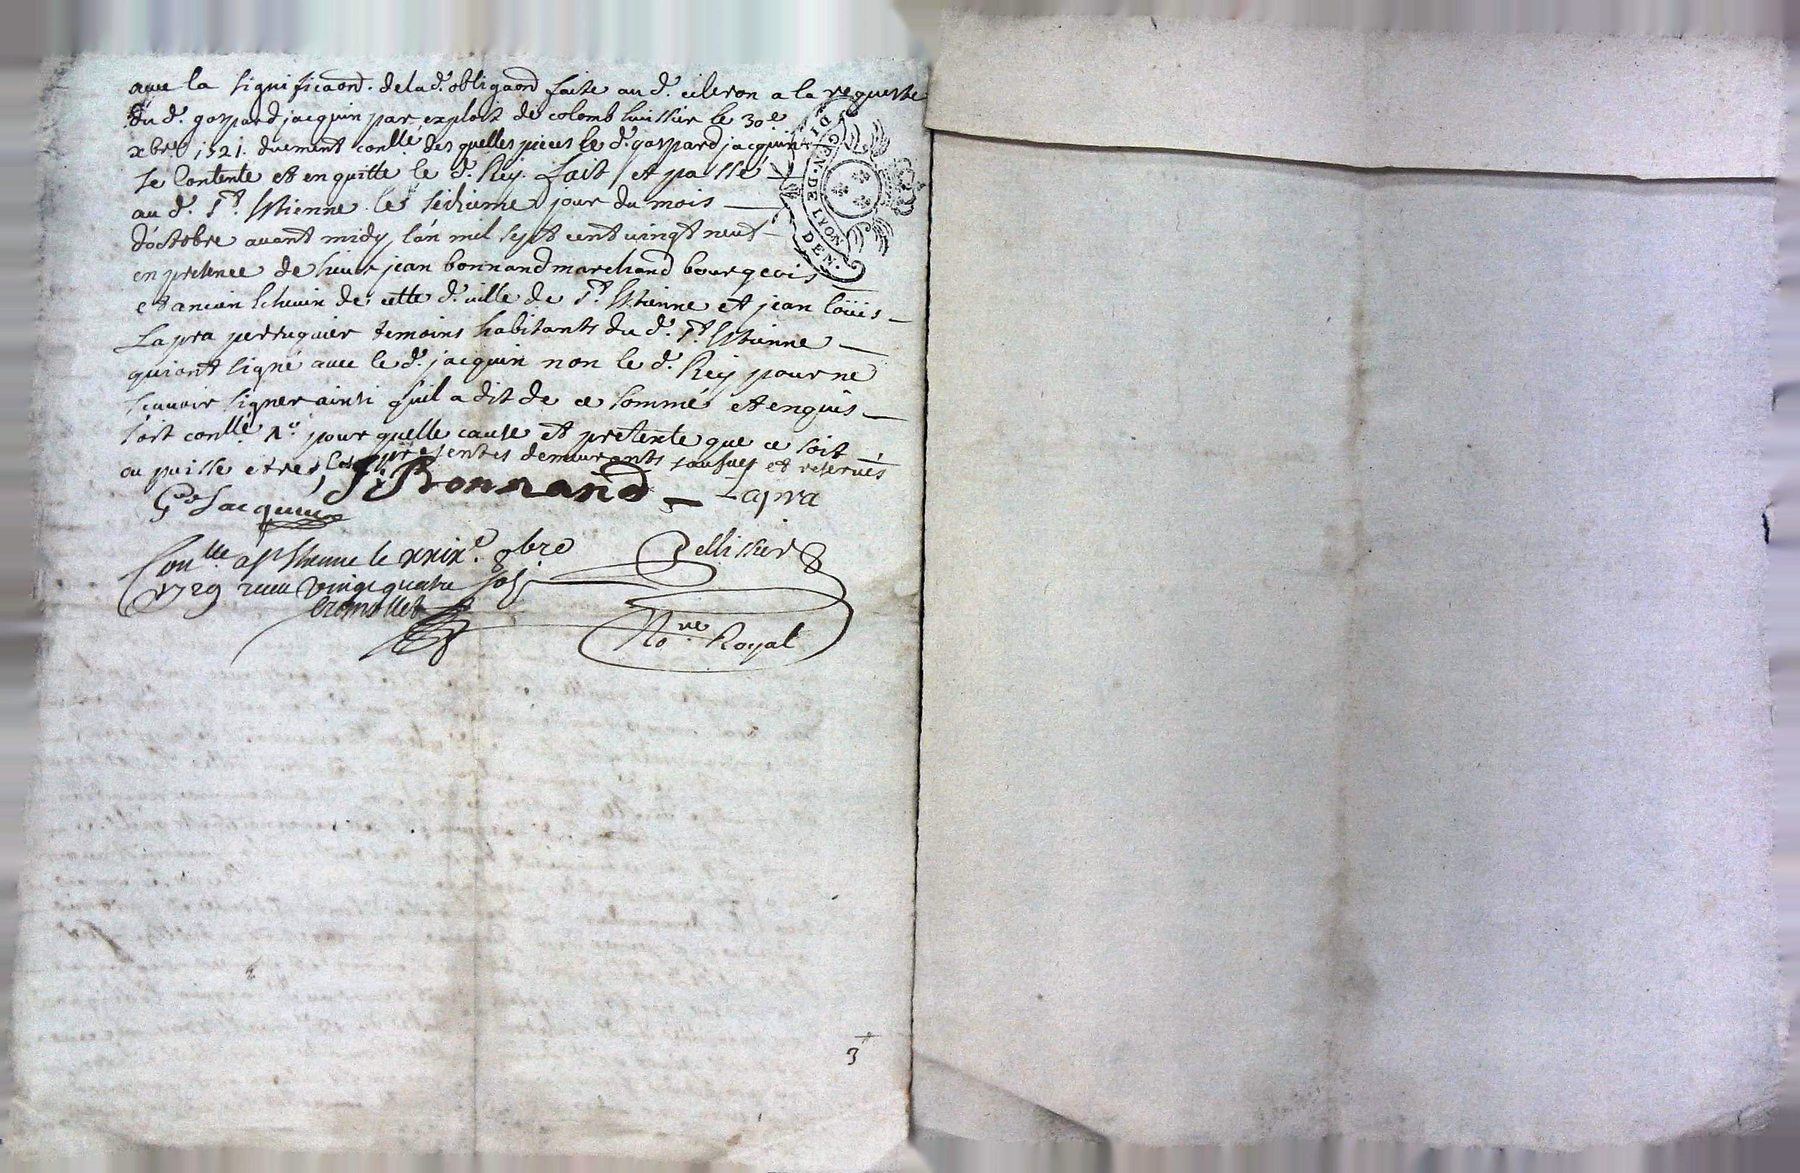 avec la significaōn. de lad.e obligaōn faite au d.t cileron a la requeste
du d.t gaspard jacquin par exploit de colomb huissier le 30e
xbre 1721. duement conllé desquelles pieces le d.t gaspard jacquin
se Contente et en quitte le d.t Rey. fait et passé
au d.t St. Estienne le seizieme jour du mois
d'octobre avant midy l'an mil sept cent vingt neuf
en presence de sieur jean bonnand marchand bourgeois
et ancien Echevin de cette d.e ville de St. Estienne et jean loüis
Lapra perruquier temoins habitants du d.t St. Estienne
qui ont signé avec le d.t jacquin non le d.t Rey pour ne
scavoir signer ainsi qu'il a dit de ce sommé et enquis
soit conllé pour quelle cause et pretexte que ce soit
ou puisse etre, les presentes demeurants sauves et reservés
Jacquin J Bonnand Lapra
Conlle a St Etienne le xxixe 8bre Pellissier
1729 receu vingt quatre sols
No.re Royal
DE LYON
DEN.
3